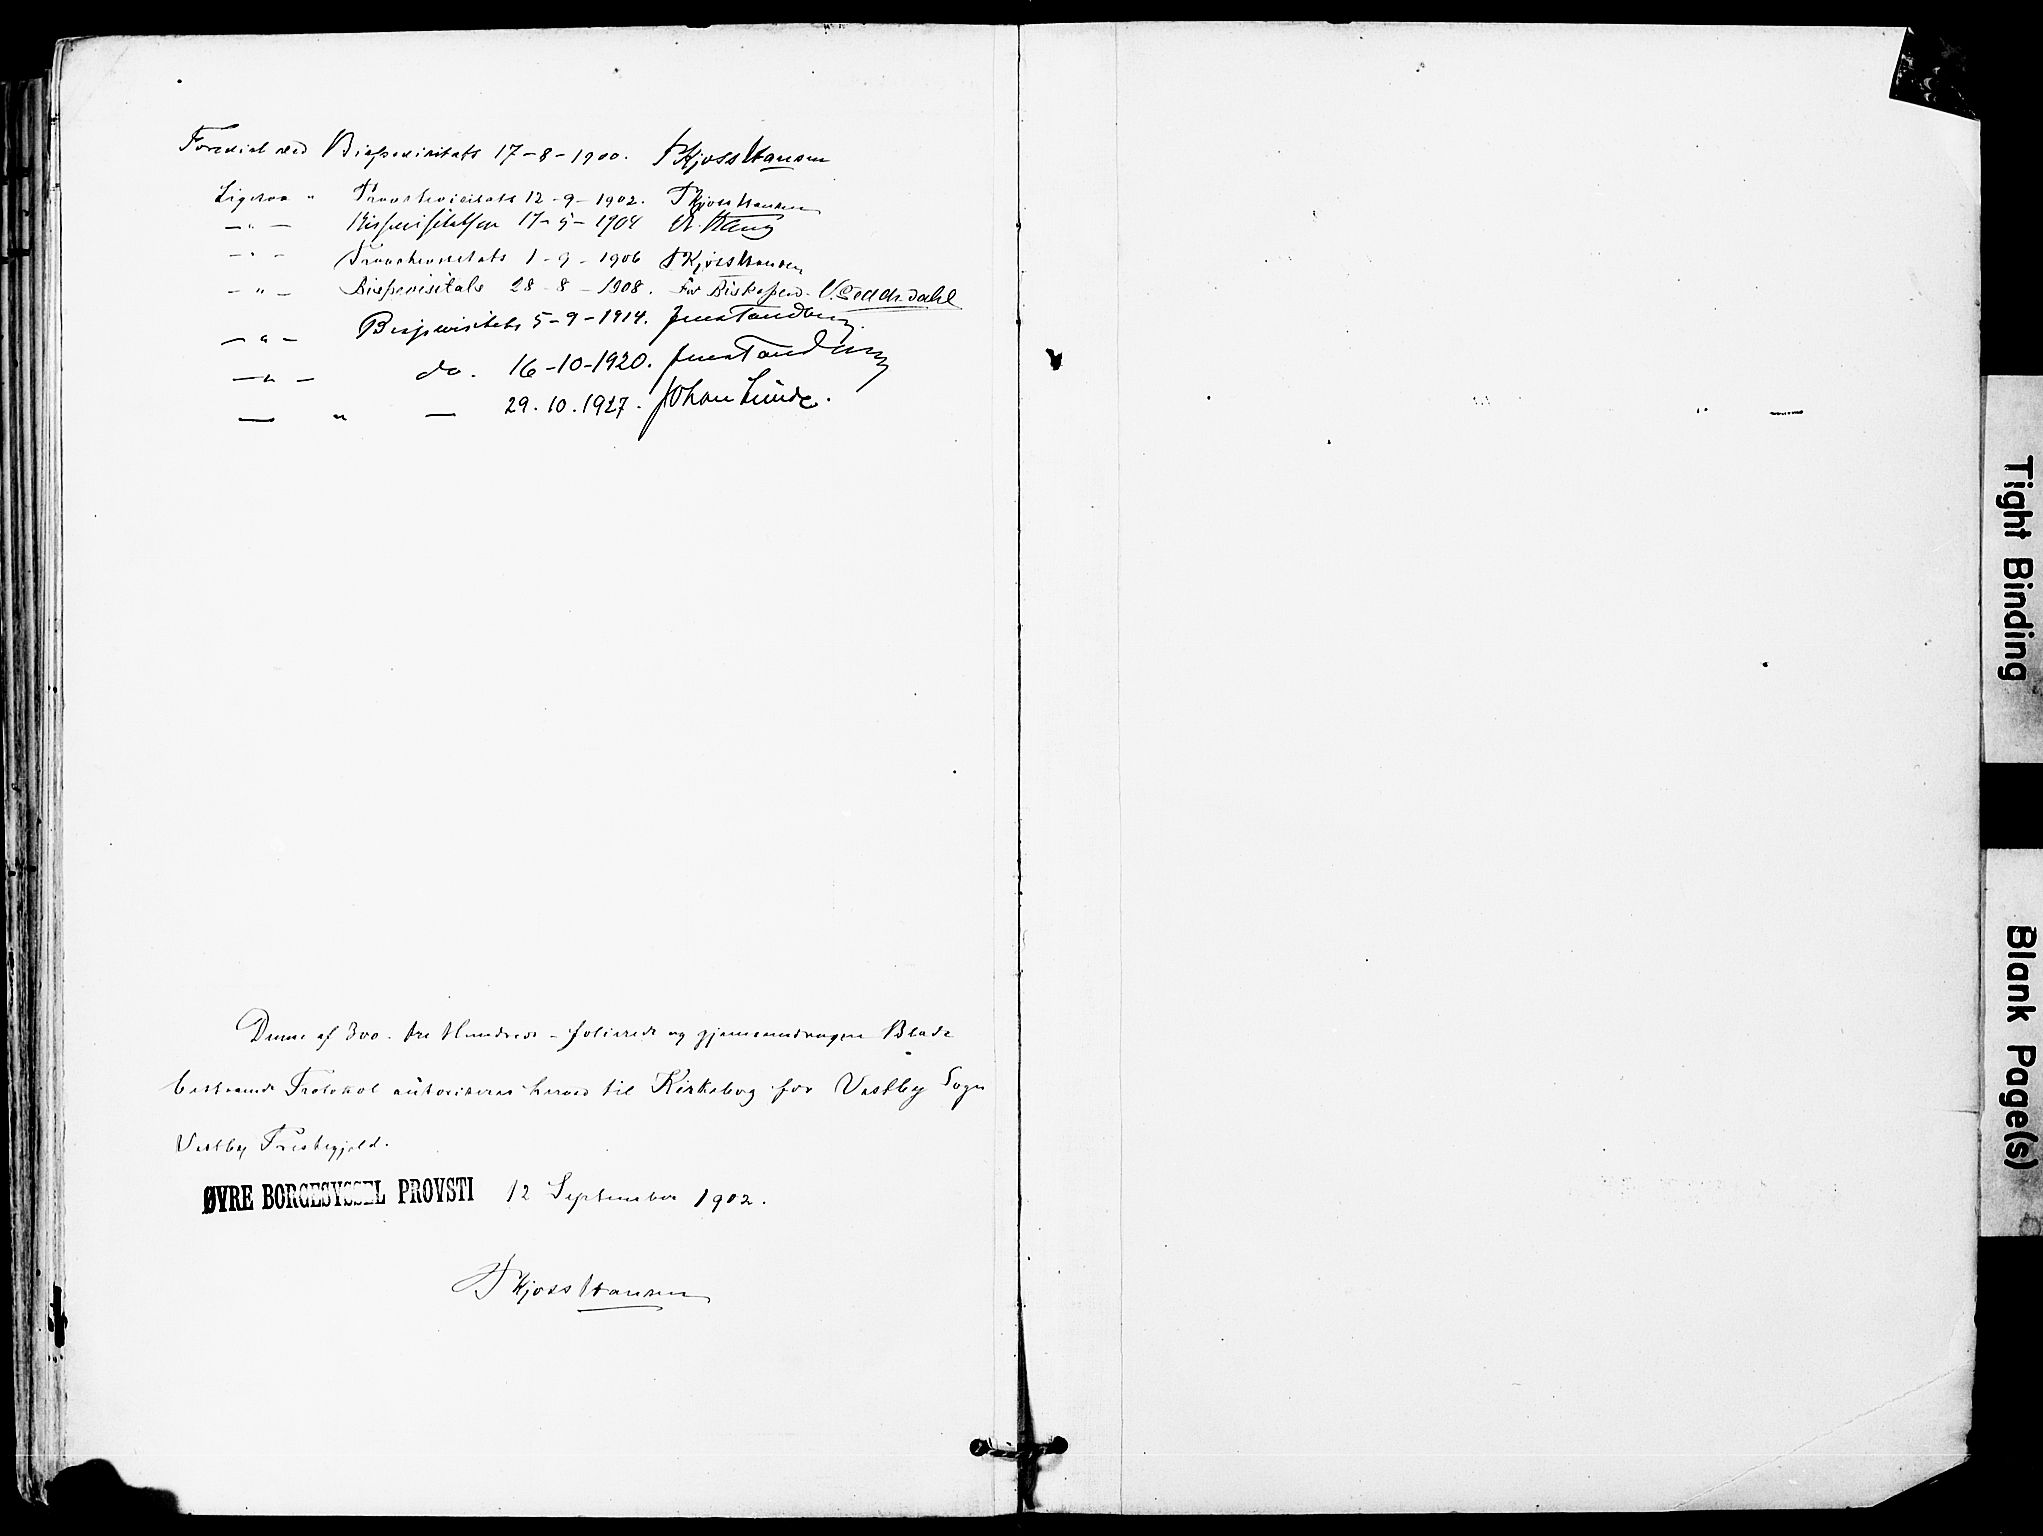 Forevist ved Bispevisitats 17-8-1900. P Kjoss Hansen
Ligesaa " Provstevisitats 12-9-1902. P Kjoss Hansen
— " — Bispevisitatsen 17-5-1904
— " — Provstevisitats 1-9-1906 P Kjoss Hansen
— " — Bispevisitats 28-8-1908. For Biskopen
— " — Bispevisitats 5-9-1914. Jens Tandberg
— " — do. 16-10-1920. Jens Tandberg
— " — 29.10.1927. Johan Lunde.
Denne af 300 - tre Hundrede - folierede og gjennemdragne Blade
bestaaende Protokol autoriseres herved til Kirkebog for Vestby Sogn
Vestby Præstegjeld.
ØVRE BORGESYSSEL PROVSTI 12 September 1902.
P Kjoss Hansen
Tight Binding
Blank Page(s)